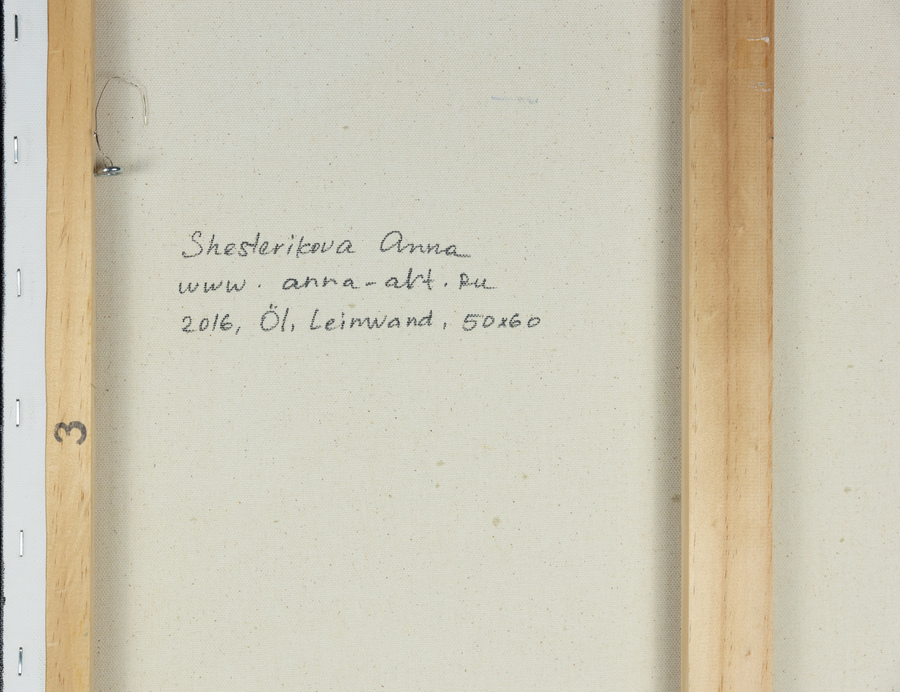 Shesterikova Anna
www. anna-art. Ru
2016, Öl, Leinwand, 50x60
3